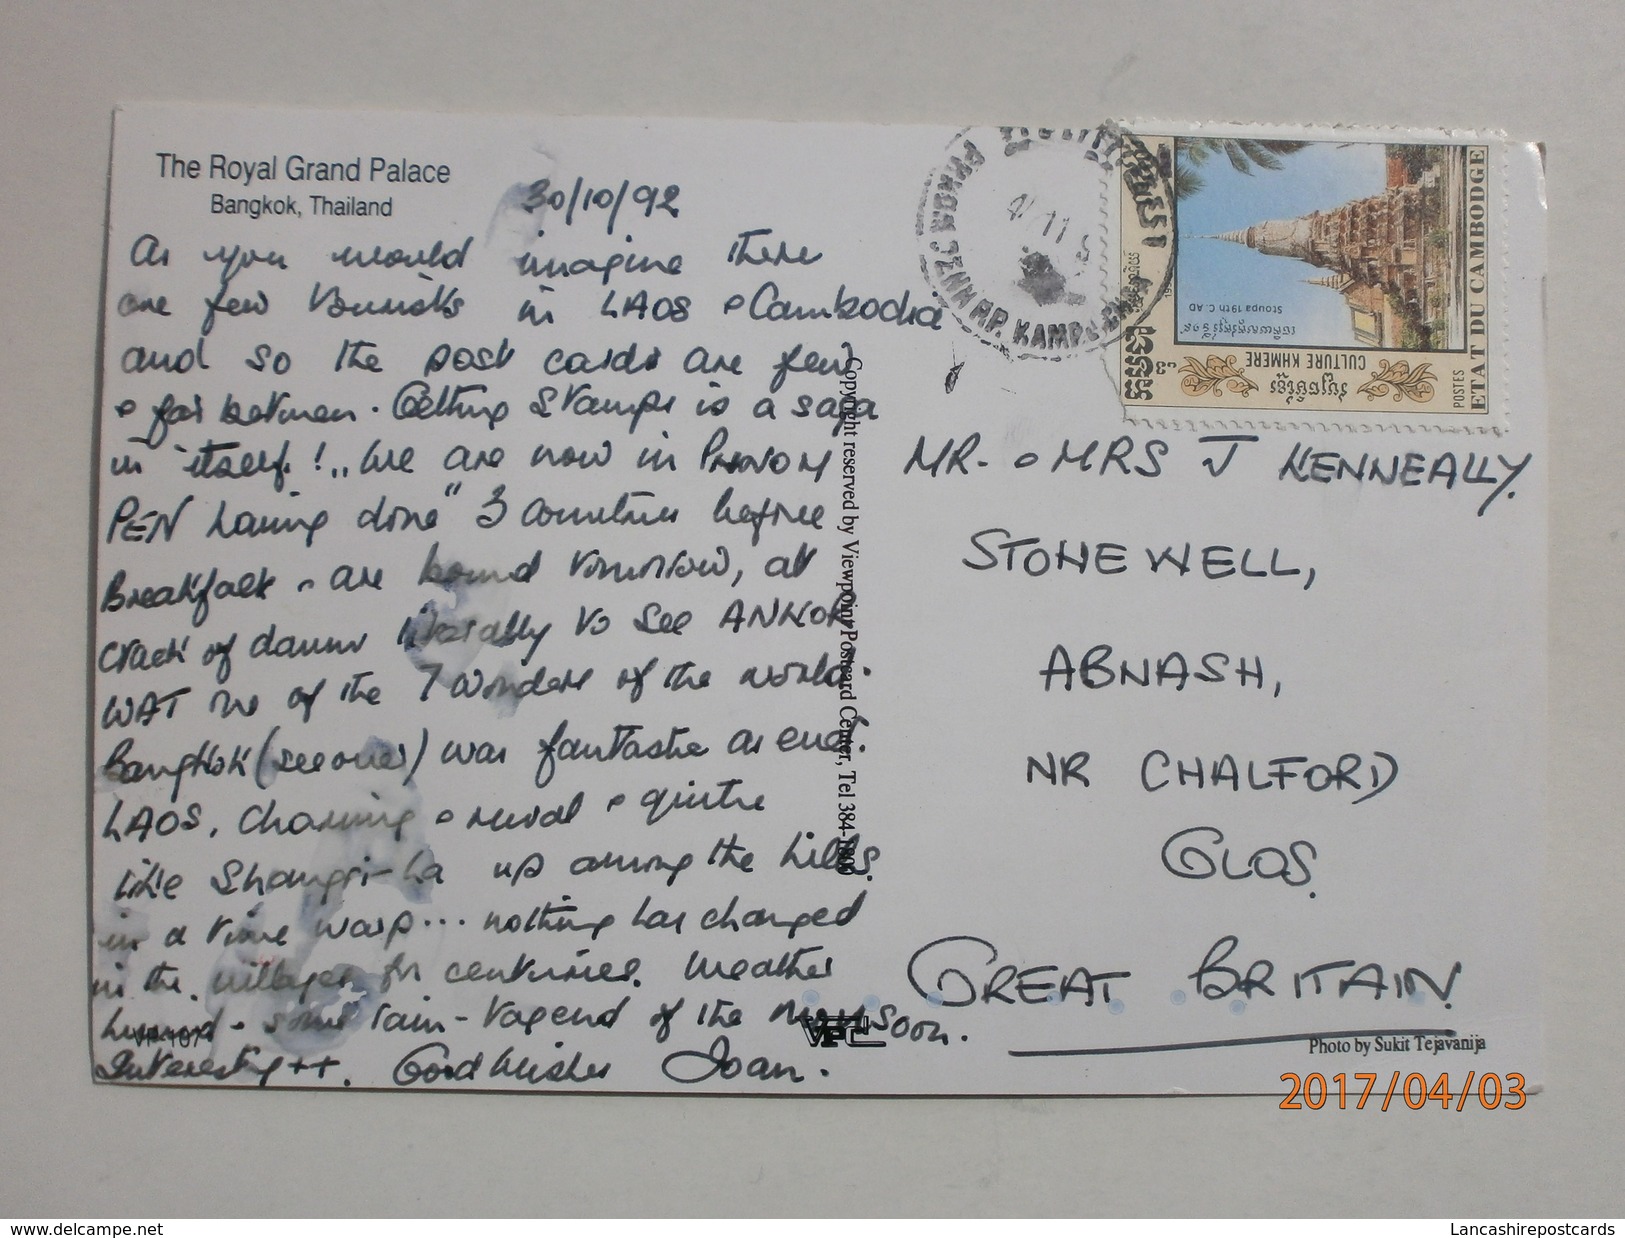 The Royal Grand Palace
Bangkok, Thailand
30/10/92
As you would imagine there
are few Tourists in LAOS & Cambodia
and so the post cards are few
& far between. Getting Stamps is a saga
in itself!.. We are now in PHNOM
PEN having done "3 countries before
Breakfast & are bound tomorrow, at
crack of dawn literally to see ANKOR
WAT one of the 7 wonders of the world.
Bangkok (see over) was fantastic as ever.
LAOS, charming & rural & quite
like Shangri-La up among the hills.
in a time warp... nothing has changed
in the villages for centuries. Weather
humid - some rain - tagend of the monsoon.
Interesting ++. Good Wishes Joan.
VP 107
Copyright reserved by Viewpoint Postcard Center, Tel 384-1800
VPC
PHNOM PENH R.P. KAMPUCHEA
4 11
ETAT DU CAMBODGE
POSTES
CULTURE KHMERE
Stoupa 19th C. AD
MR. & MRS J KENNEALLY.
STONEWELL,
ABNASH,
NR CHALFORD
GLOS.
GREAT BRITAIN.
Photo by Sukit Tejavanija
2017/04/03
www.delcampe.net
Lancashirepostcards